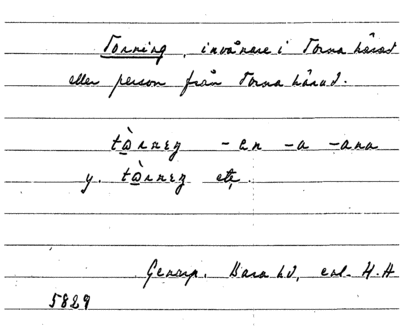 Torning, invånare i Torna härad
eller person från Torna härad.
tɷ̀rnɛŋ -en -a -ana
y. tɷ̀rnɛŋ etc.
Genarp. Bara hd, enl. H.H
5829